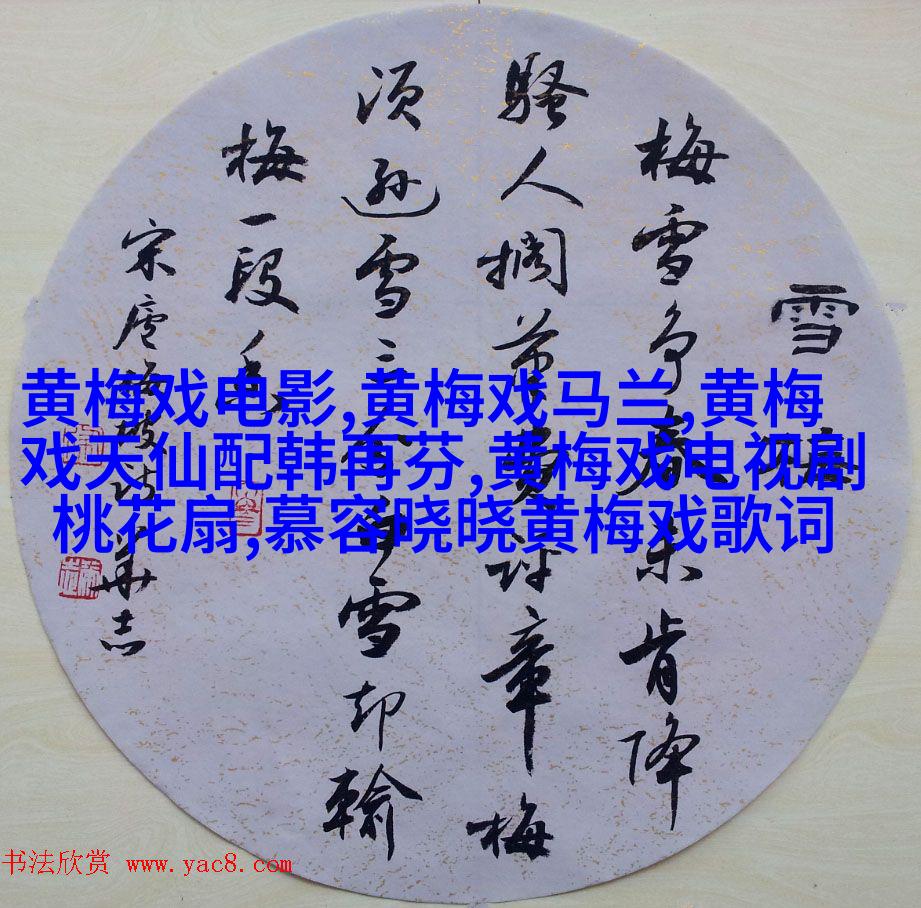 雪梅
梅雪争春未肯降
骚人搁笔费评章梅
须逊雪三分白雪却输
梅一段香
宋卢梅坡诗 华志
黄梅戏电影,黄梅戏马兰,黄梅
戏天仙配韩再芬,黄梅戏电视剧
桃花扇,慕容晓晓黄梅戏歌词
书法欣赏 www.yac8.com